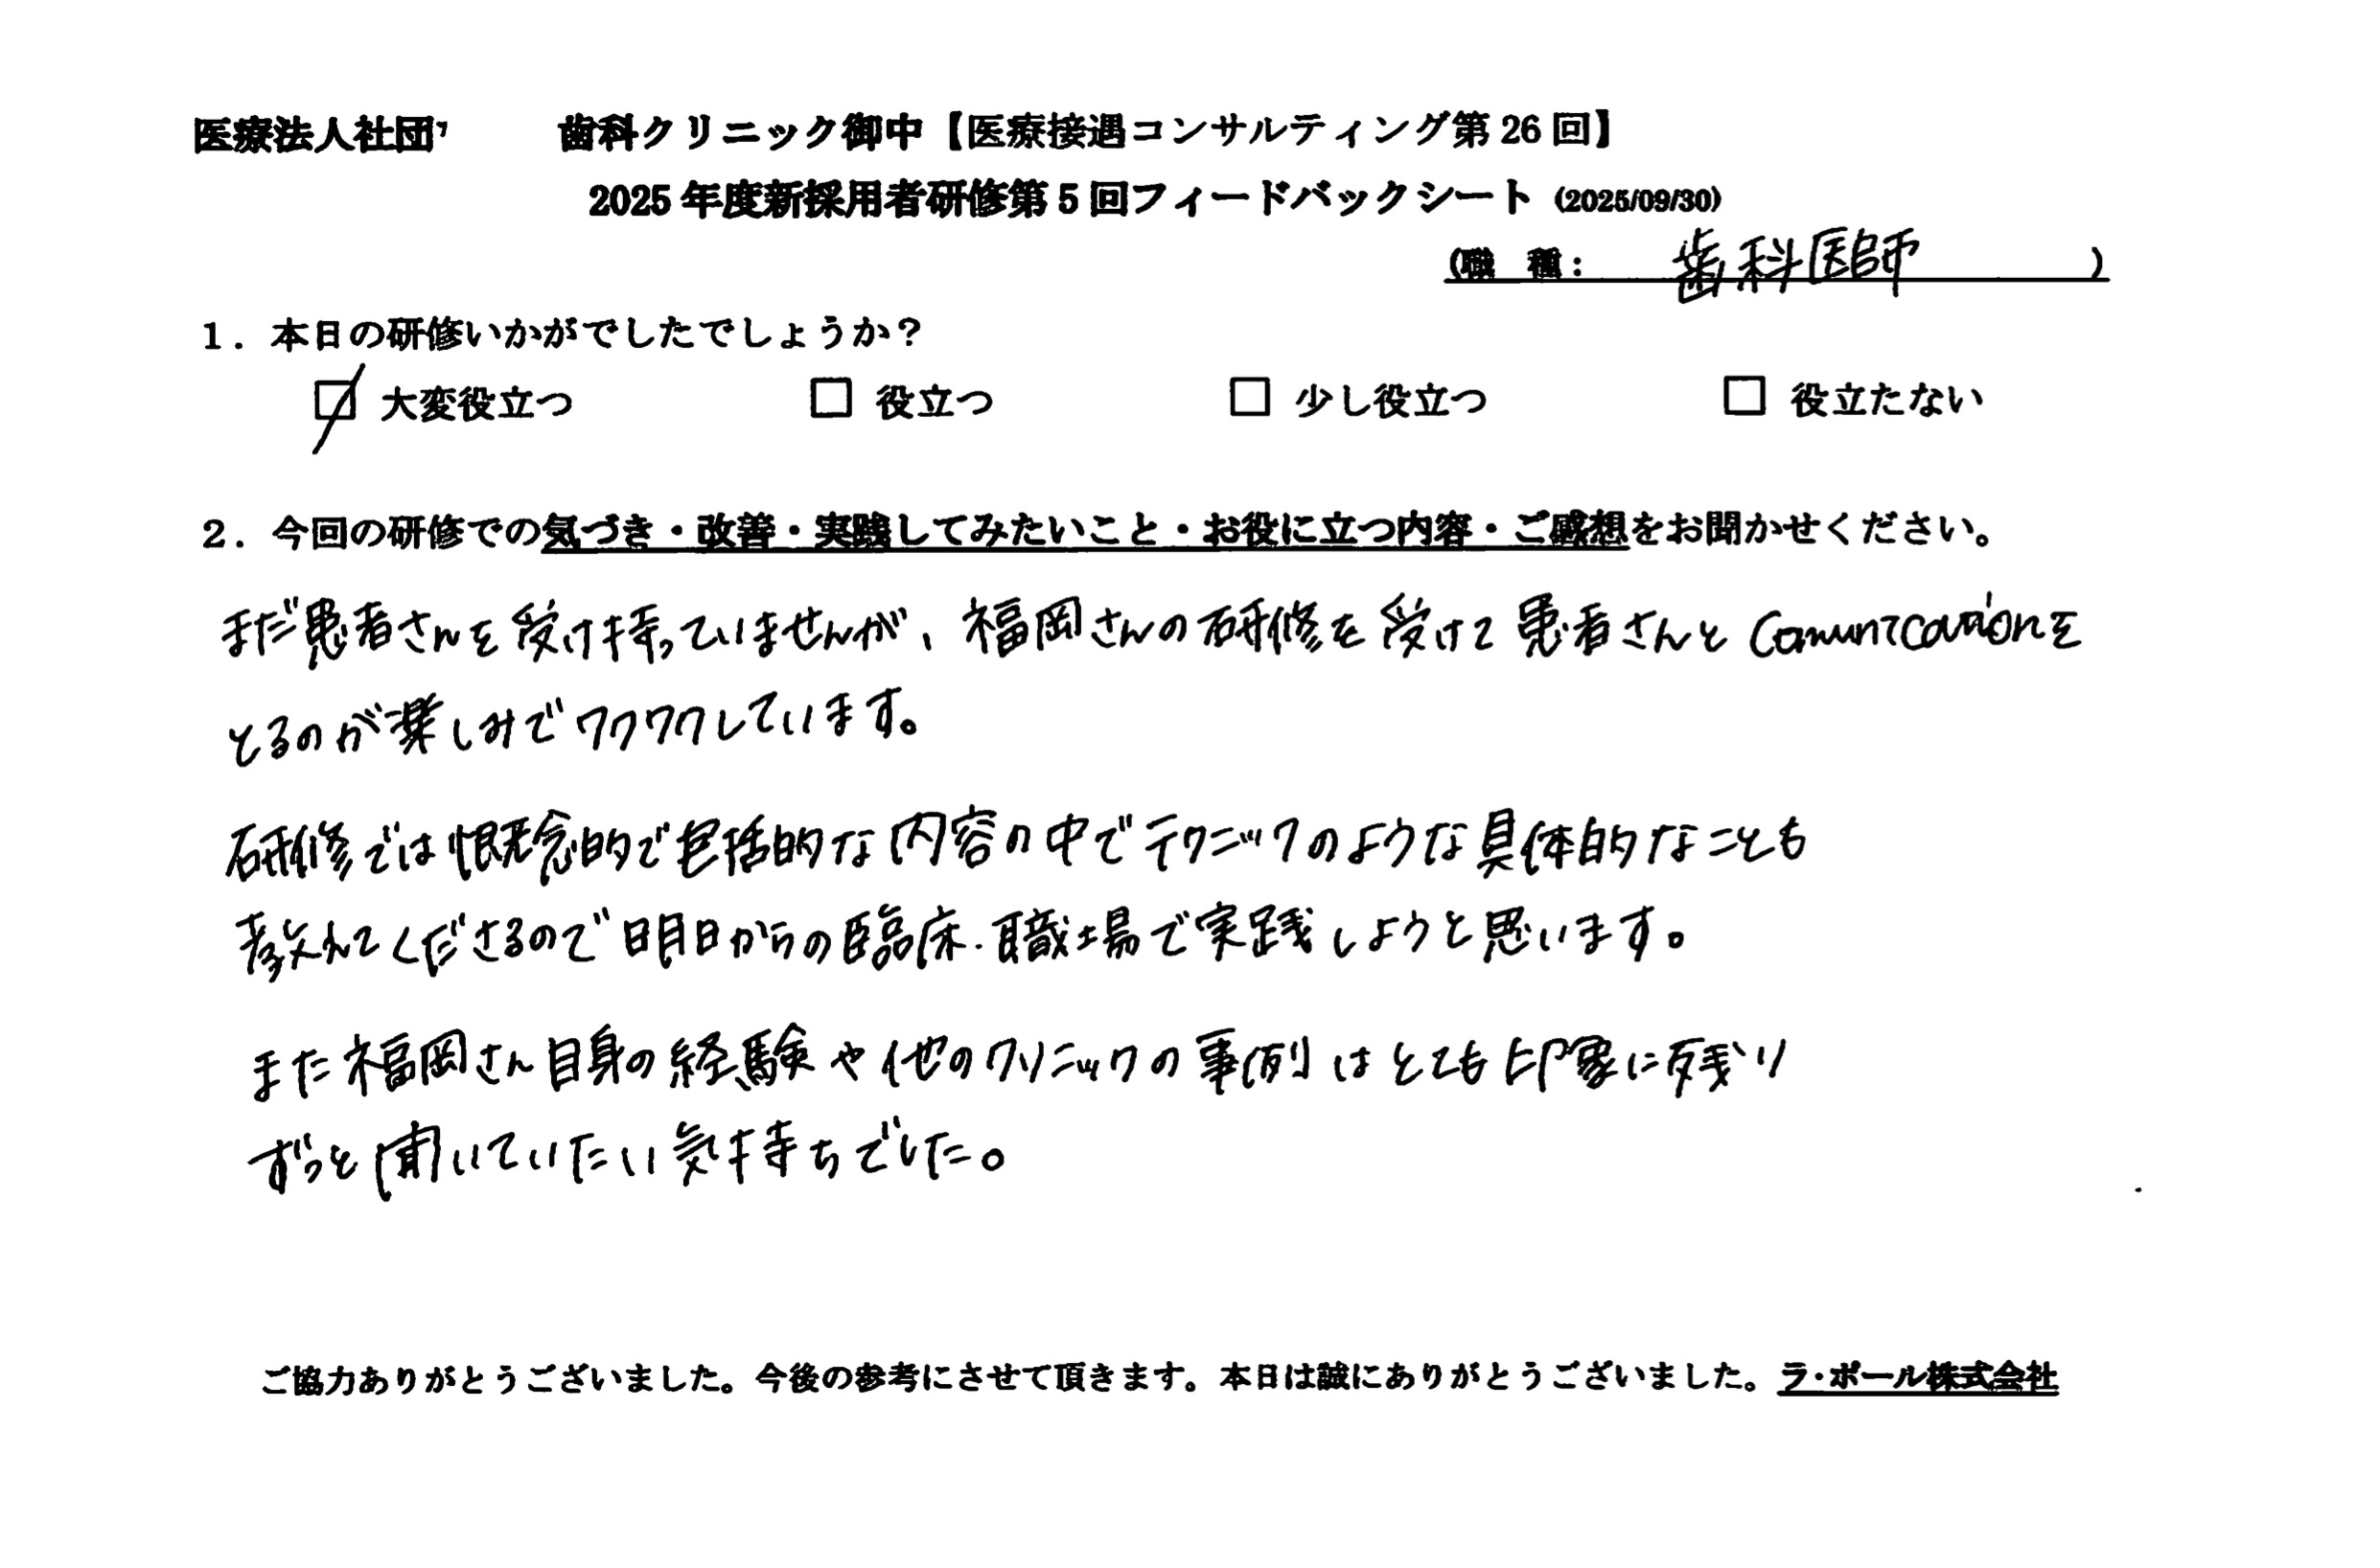 医療法人社団 歯科クリニック御中【医療接遇コンサルティング第26回】
2025年度新採用者研修第5回フィードバックシート（2025/09/30）
（職 種： 歯科医師 ）
1．本日の研修いかがでしたでしょうか？
☑ 大変役立つ □ 役立つ □ 少し役立つ □ 役立たない
2．今回の研修での気づき・改善・実践してみたいこと・お役に立つ内容・ご感想をお聞かせください。
まだ患者さんを受け持っていませんが、福岡さんの研修を受けて患者さんとComunicationを
とるのが楽しみでワクワクしています。
研修では概念的で包括的な内容の中でテクニックのような具体的なことも
教えてくださるので明日からの臨床・職場で実践しようと思います。
また福岡さん自身の経験や他のクリニックの事例はとても印象に残り
ずっと聞いていたい気持ちでした。
ご協力ありがとうございました。今後の参考にさせて頂きます。本日は誠にありがとうございました。ラ・ポール株式会社